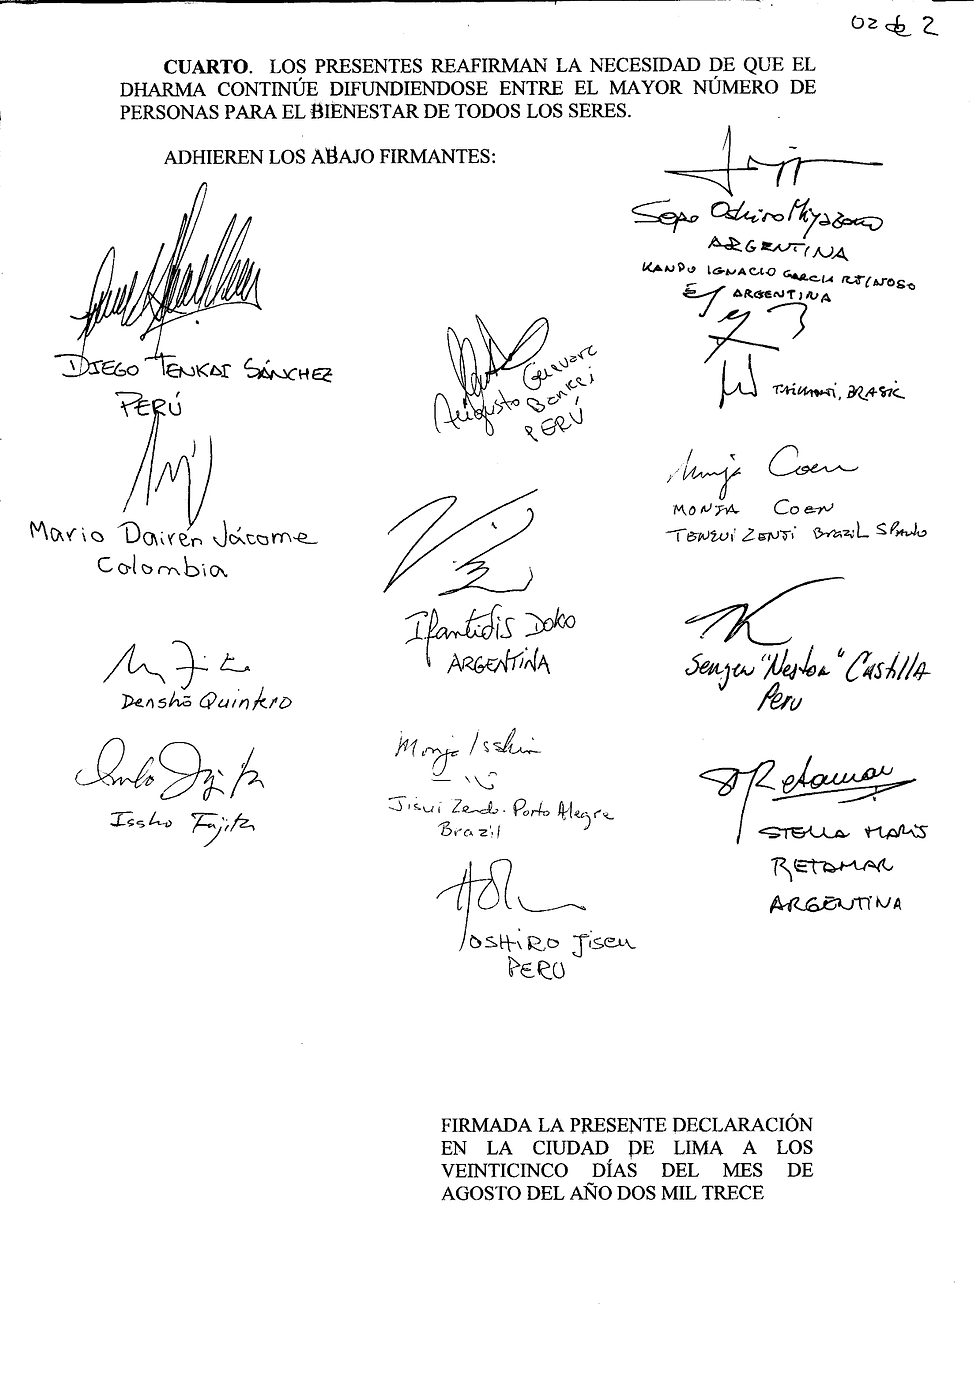 02 de 2
CUARTO. LOS PRESENTES REAFIRMAN LA NECESIDAD DE QUE EL
DHARMA CONTINÚE DIFUNDIENDOSE ENTRE EL MAYOR NÚMERO DE
PERSONAS PARA EL BIENESTAR DE TODOS LOS SERES.
ADHIEREN LOS ABAJO FIRMANTES:
Oshiro Miyazono
ARGENTINA
KANDO IGNACIO GARCIA REINOSO
ARGENTINA
DIEGO TENKAI SÁNCHEZ
PERÚ
Augusto Guevara
Bankei
PERÚ
BRASIL
Mario Dairén Jácome
Colombia
Monja Coen
MONJA COEN
TENZUI ZENJI Brazil S Paulo
Ifantidis Doko
ARGENTINA
Senzen "Nestor" Castilla
Peru
Denshō Quintero
Issho Fujita
Issho Fujita
Monja Isshin
Jisui Zendo. Porto Alegre
Brazil
Retamar
STELLA MARIS
RETAMAR
ARGENTINA
OSHIRO Jisen
PERU
FIRMADA LA PRESENTE DECLARACIÓN
EN LA CIUDAD DE LIMA A LOS
VEINTICINCO DÍAS DEL MES DE
AGOSTO DEL AÑO DOS MIL TRECE